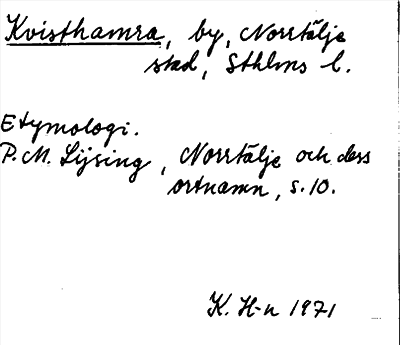 Kvisthamra, by, Norrtälje
stad, Sthlms l.
Etymologi.
P.M. Lijsing, Norrtälje och dess
ortnamn, s. 10.
K. H-n 1971